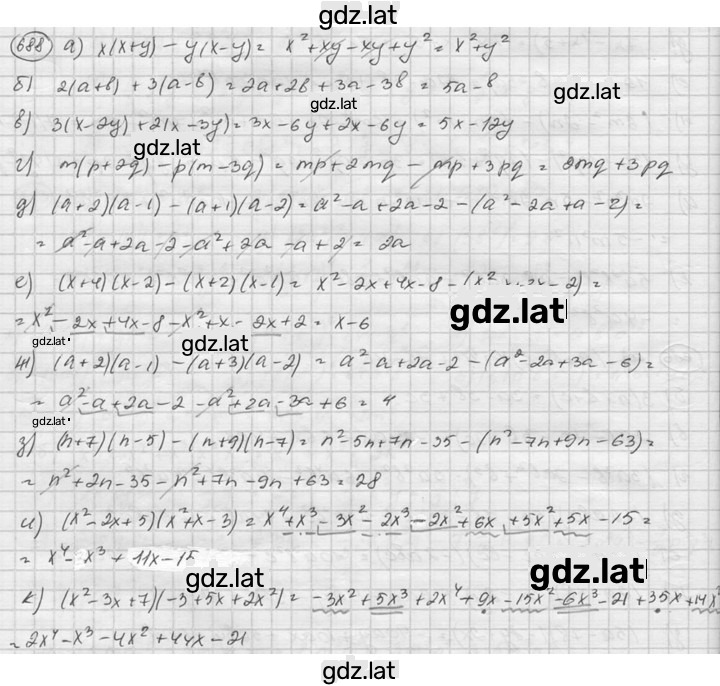 gdz.lat
688 а) x(x+y) - y(x-y) = x²+xy-xy+y² = x²+y²
б) 2(a+b) + 3(a-b) = 2a+2b+3a-3b = 5a-b
gdz.lat
gdz.lat
в) 3(x-2y)+2(x-3y) = 3x-6y+2x-6y = 5x-12y
gdz.lat
г) m(p+2q) - p(m-3q) = mp+2mq - mp+3pq = 2mq+3pq
д) (a+2)(a-1) - (a+1)(a-2) = a²-a+2a-2-(a²-2a+a-2) =
= a²-a+2a-2-a²+2a-a+2 = 2a
е) (x+4)(x-2) - (x+2)(x-1) = x²-2x+4x-8-(x² - 2) =
gdz.lat
= x²-2x+4x-8-x²+x-2x+2 = x-6
ж) (a+2)(a-1) - (a+3)(a-2) = a²-a+2a-2-(a²-2a+3a-6) =
= a²-a+2a-2-a²+2a-3a+6 = 4
gdz.lat
з) (n+7)(n-5) - (n+9)(n-7) = n²-5n+7n-35-(n²-7n+9n-63) =
= n²+2n-35-n²+7n-9n+63 = 28
и) (x²-2x+5)(x²+x-3) = x⁴+x³-3x²-2x³-2x²+6x+5x²+5x-15 =
= x⁴-x³+11x-15
gdz.lat
gdz.lat
к) (x²-3x+7)(-3+5x+2x²) = -3x²+5x³+2x⁴+9x-15x²-6x³-21+35x+14x²
= 2x⁴-x³-4x²+44x-21
gdz.lat